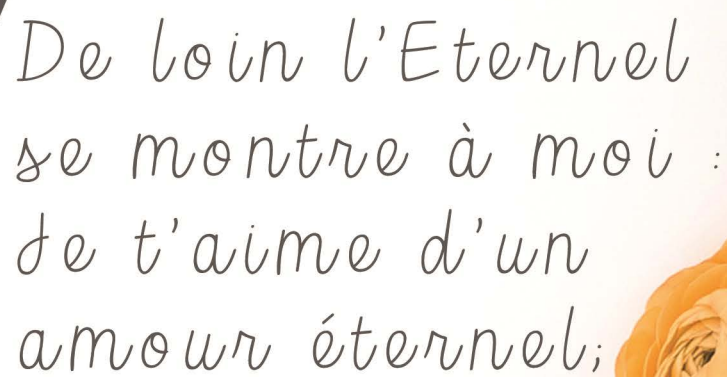 De loin l'Eternel
se montre à moi :
Je t'aime d'un
amour éternel;